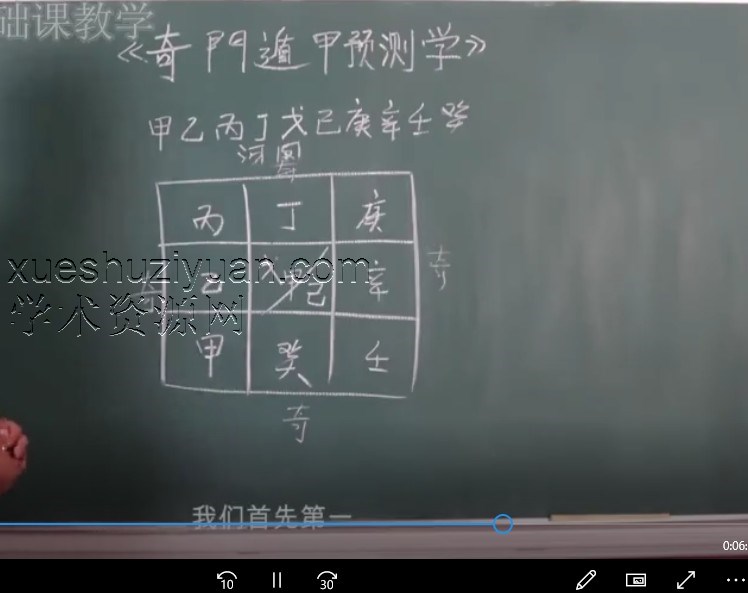 础课教学
《奇門遁甲预测学》
甲乙丙丁戊己庚辛壬癸
河圖
奇
丙 丁 庚
乙 戊 己 辛
奇
xueshuziyuan.com
学术资源网
甲 癸 壬
奇
我们首先第一
0:06:
10
30